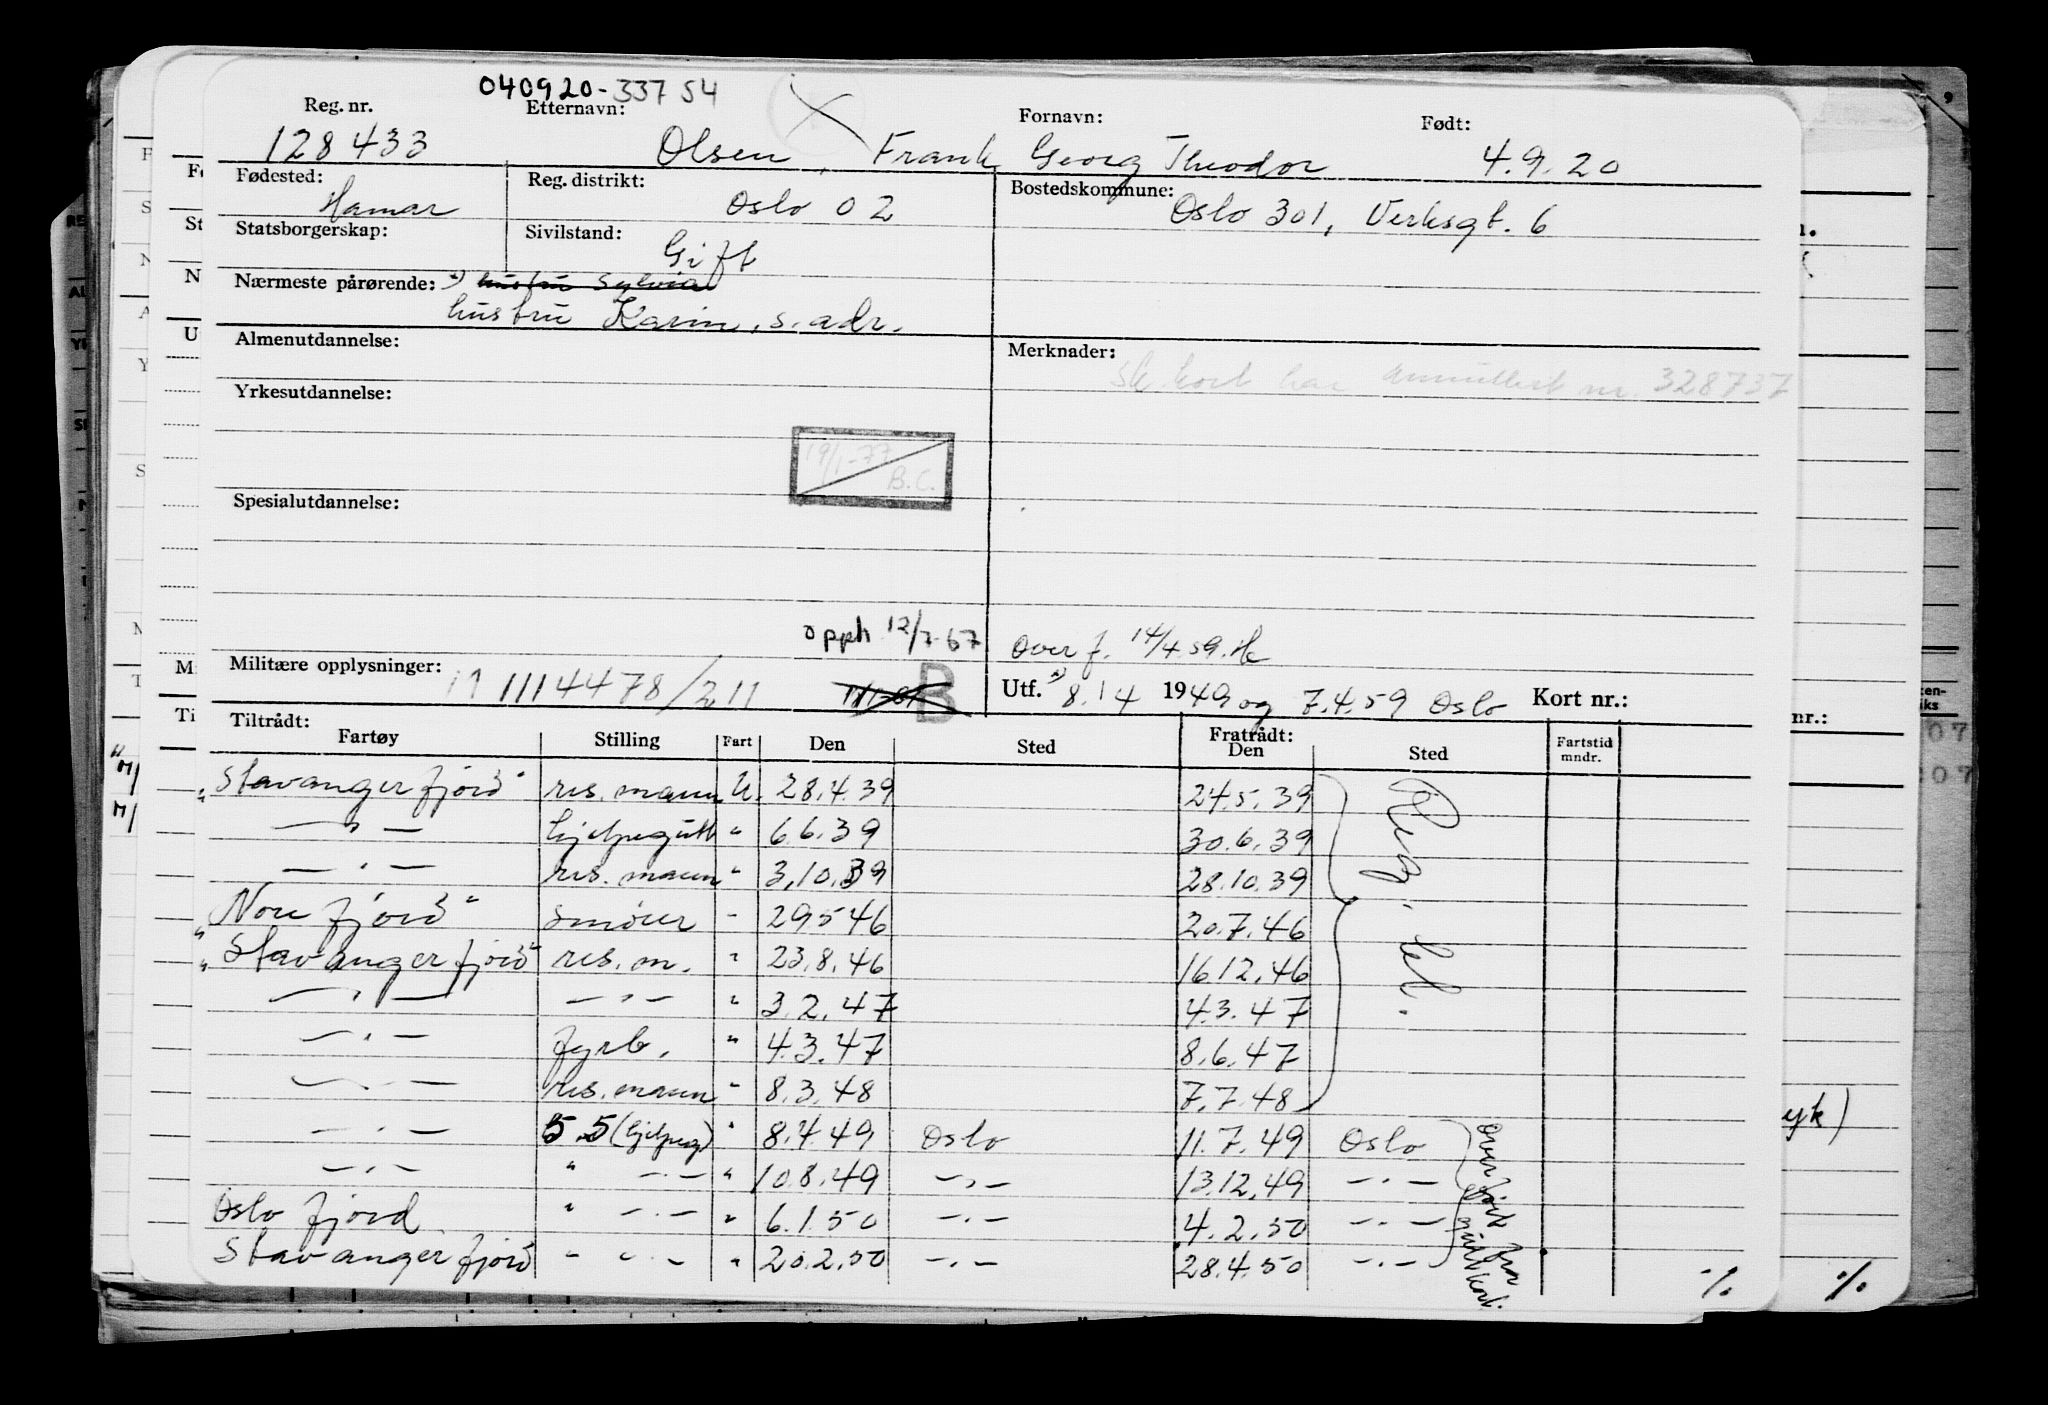 040920-33754
Reg. nr. Etternavn: Fornavn: Født:
128433 Olsen, Frank Georg Theodor 4.9.20
Fødested: Hamar Reg. distrikt: Oslo 02 Bostedskommune: Oslo 301, Verksgt. 6
Statsborgerskap: Sivilstand: Gift
Nærmeste pårørende: hustru Sylvia
hustru Karin, s. adr.
Almenutdannelse: Merknader:
Sk. kort har annullert nr. 328737
Yrkesutdannelse:
19/1-77
B.C.
Spesialutdannelse:
opph 12/7-67 Over f. 14/4.59.
Militære opplysninger: 111114478/211 B Utf. 8.14 1949 og 7.4.59 Oslo Kort nr.:
Tiltrådt: Fratrådt:
Fartøy Stilling Fart Den Sted Den Sted Fartstid mndr.
"Stavangerfjord" res. mann U. 28.4.39 24.5.39
— " — hjelpegutt " 6.6.39 30.6.39
— " — res. mann " 3.10.39 28.10.39
"Norefjord" smører - 29.5.46 20.7.46
"Stavangerfjord" res. m. " 23.8.46 16.12.46
— " — — " — " 3.2.47 4.3.47
— " — fyrb. " 4.3.47 8.6.47
— " — res. mann " 8.3.48 7.7.48
— " — 5.5 (hjelpeg) " 8.4.49 Oslo 11.7.49 Oslo
— " — " — " — " 10.8.49 — " — 13.12.49 — " —
Oslofjord " — " — " 6.1.50 — " — 4.2.50 — " —
Stavangerfjord " — " — " 20.2.50 — " — 28.4.50 — " —
%
%